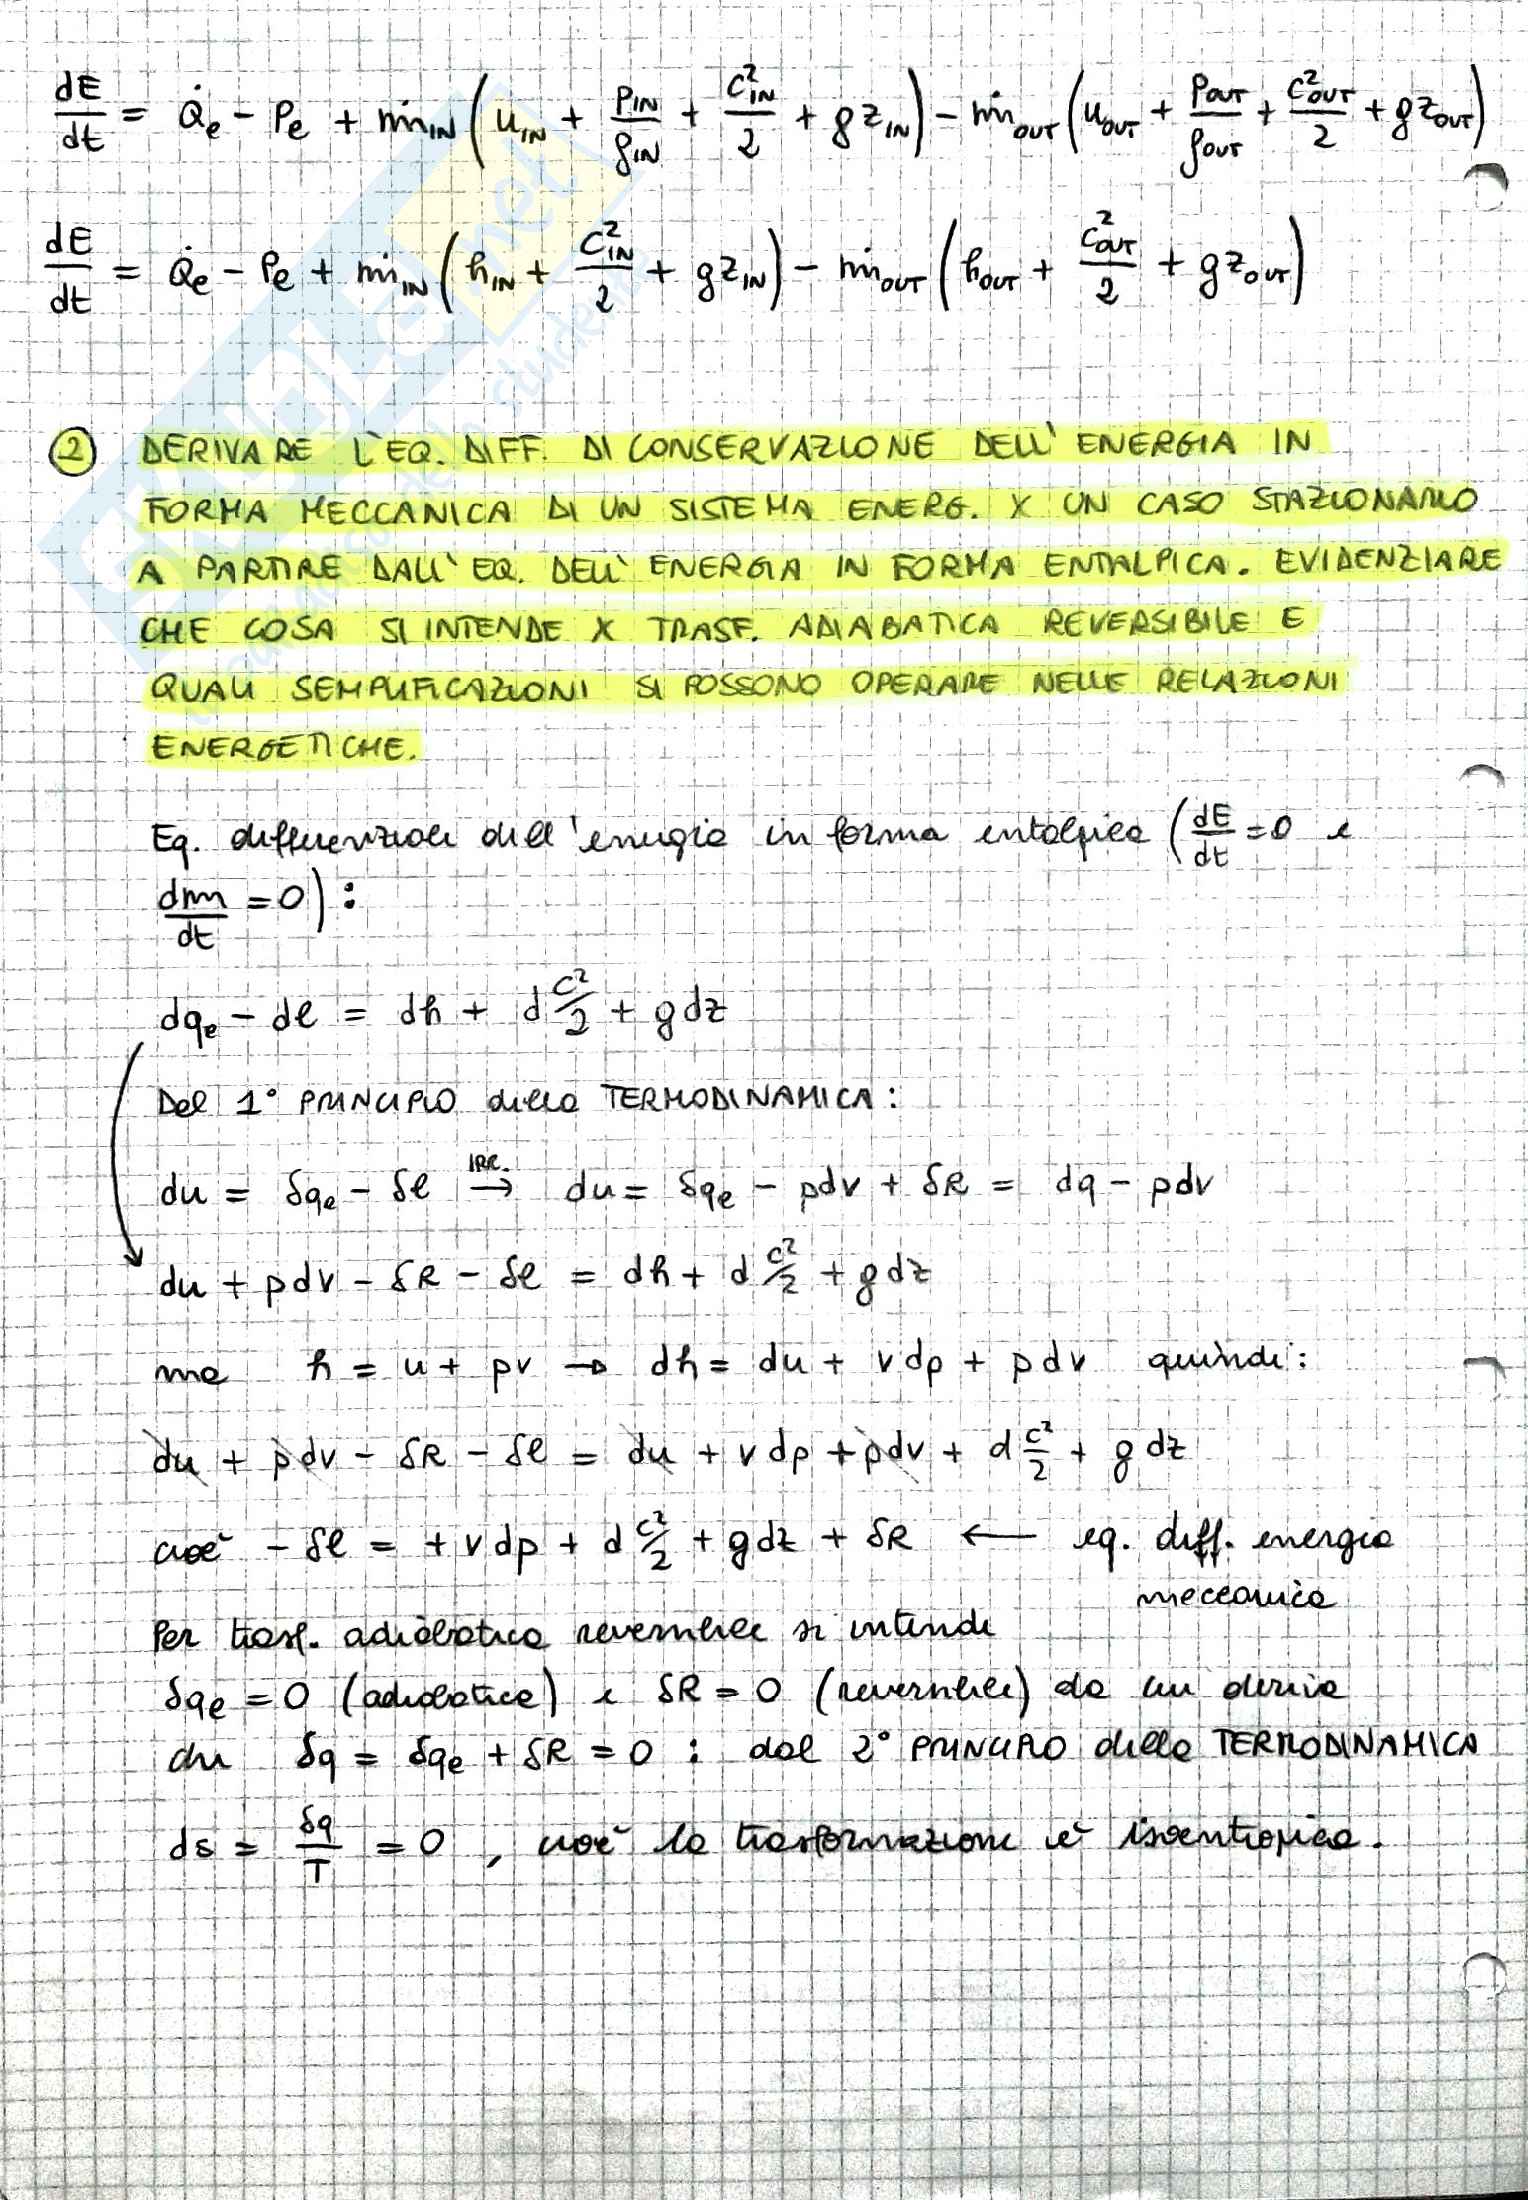 dE/dt = Q̇e - Pe + ṁIN (uIN + pIN/ρIN + c²IN/2 + gzIN) - ṁOUT (uOUT + pOUT/ρOUT + c²OUT/2 + gzOUT)
dE/dt = Q̇e - Pe + ṁIN (hIN + c²IN/2 + gzIN) - ṁOUT (hOUT + c²OUT/2 + gzOUT)
2 DERIVARE L'EQ. DIFF. DI CONSERVAZIONE DELL'ENERGIA IN
FORMA MECCANICA DI UN SISTEMA ENERG. X UN CASO STAZIONARIO
A PARTIRE DALL'EQ. DELL'ENERGIA IN FORMA ENTALPICA. EVIDENZIARE
CHE COSA SI INTENDE X TRASF. ADIABATICA REVERSIBILE E
QUALI SEMPLIFICAZIONI SI POSSONO OPERARE NELLE RELAZIONI
ENERGETICHE.
Eq. differenziale dell'energia in forma entalpica (dE/dt = 0 e
dm/dt = 0):
dqe - dl = dh + d c²/2 + gdz
Dal 1° PRINCIPIO della TERMODINAMICA:
du = δqe - δl IRR. → du = δqe - pdv + δR = dq - pdv
du + pdv - δR - δl = dh + d c²/2 + gdz
ma h = u + pv → dh = du + vdp + pdv quindi:
du + pdv - δR - δl = du + vdp + pdv + d c²/2 + gdz
cioè - δl = + vdp + d c²/2 + gdz + δR ← eq. diff. energia
meccanica
Per trasf. adiabatica reversibile si intende
δqe = 0 (adiabatica) e δR = 0 (reversibile) da cui deriva
che δq = δqe + δR = 0 : dal 2° PRINCIPIO della TERMODINAMICA
ds = δq/T = 0 , cioè la trasformazione è isoentropica.